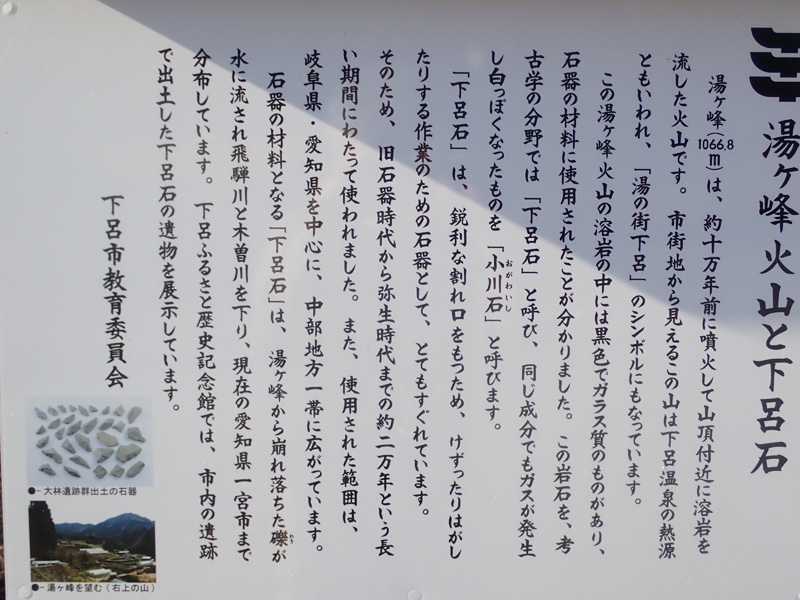 湯ヶ峰火山と下呂石
湯ヶ峰(1066.8m)は、約十万年前に噴火して山頂付近に溶岩を
流した火山です。市街地から見えるこの山は下呂温泉の熱源
ともいわれ、「湯の街下呂」のシンボルにもなっています。
この湯ヶ峰火山の溶岩の中には黒色でガラス質のものがあり、
石器の材料に使用されたことが分かりました。この岩石を、考
古学の分野では「下呂石」と呼び、同じ成分でもガスが発生
し白っぽくなったものを「小川石」と呼びます。
おがわいし
「下呂石」は、鋭利な割れ口をもつため、けずったりはがし
たりする作業のための石器として、とてもすぐれています。
そのため、旧石器時代から弥生時代までの約二万年という長
い期間にわたって使われました。また、使用された範囲は、
岐阜県・愛知県を中心に、中部地方一帯に広がっています。
石器の材料となる「下呂石」は、湯ヶ峰から崩れ落ちた礫が
れき
水に流され飛騨川と木曽川を下り、現在の愛知県一宮市まで
分布しています。下呂ふるさと歴史記念館では、市内の遺跡
で出土した下呂石の遺物を展示しています。
下呂市教育委員会
●-大林遺跡群出土の石器
●-湯ヶ峰を望む(右上の山)